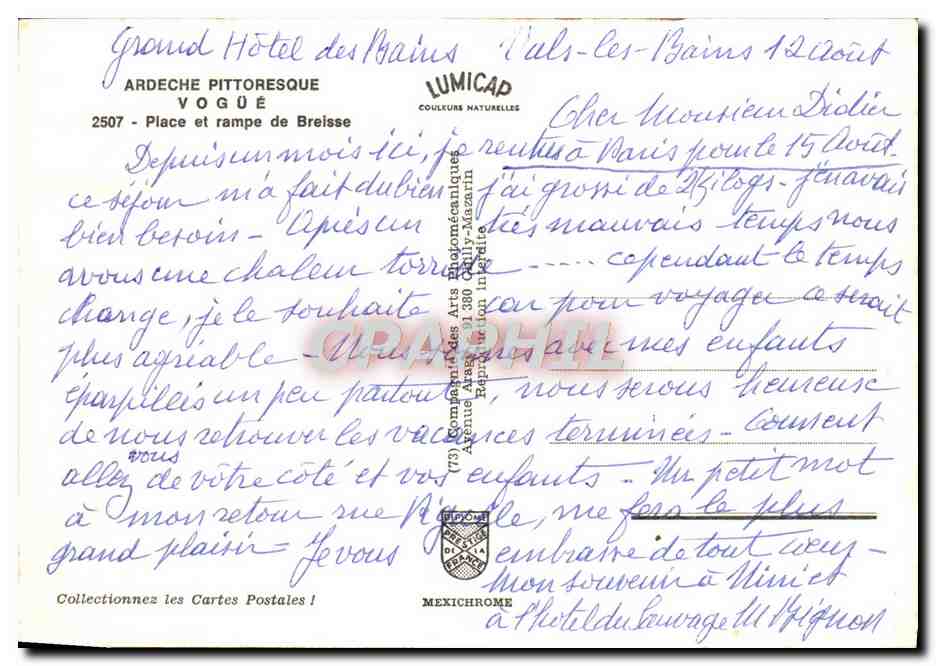 Grand Hôtel des Bains Vals-les-Bains 12 Août
ARDECHE PITTORESQUE
VOGÜÉ
2507 - Place et rampe de Breisse
LUMICAP
COULEURS NATURELLES
Cher Monsieur Didier
Depuis un mois ici, je rentre à Paris pour le 15 Août.
ce séjour m'a fait du bien j'ai grossi de 2 kilogs - j'en avais
bien besoin - Après un très mauvais temps nous
avons une chaleur torride ..... cependant le temps
change, je le souhaite car pour voyager ce serait
plus agréable - Nous sommes avec mes enfants
éparpillés un peu partout, nous serons heureuse
de nous retrouver les vacances terminées - Comment
allez vous de vôtre côté et vos enfants - Un petit mot
à mon retour rue, me fera le plus
grand plaisir - Je vous embrasse de tout cœur -
Mon souvenir à Mimi et
à l'hotel du M Vignon
(73) Compagnie des Arts Photomécaniques
Avenue Arago, 91 380 Chilly-Mazarin
Reproduction interdite
CPAPHIL
DIPLOME
PRESTIGE
DE LA
FRANCE
Collectionnez les Cartes Postales !
MEXICHROME